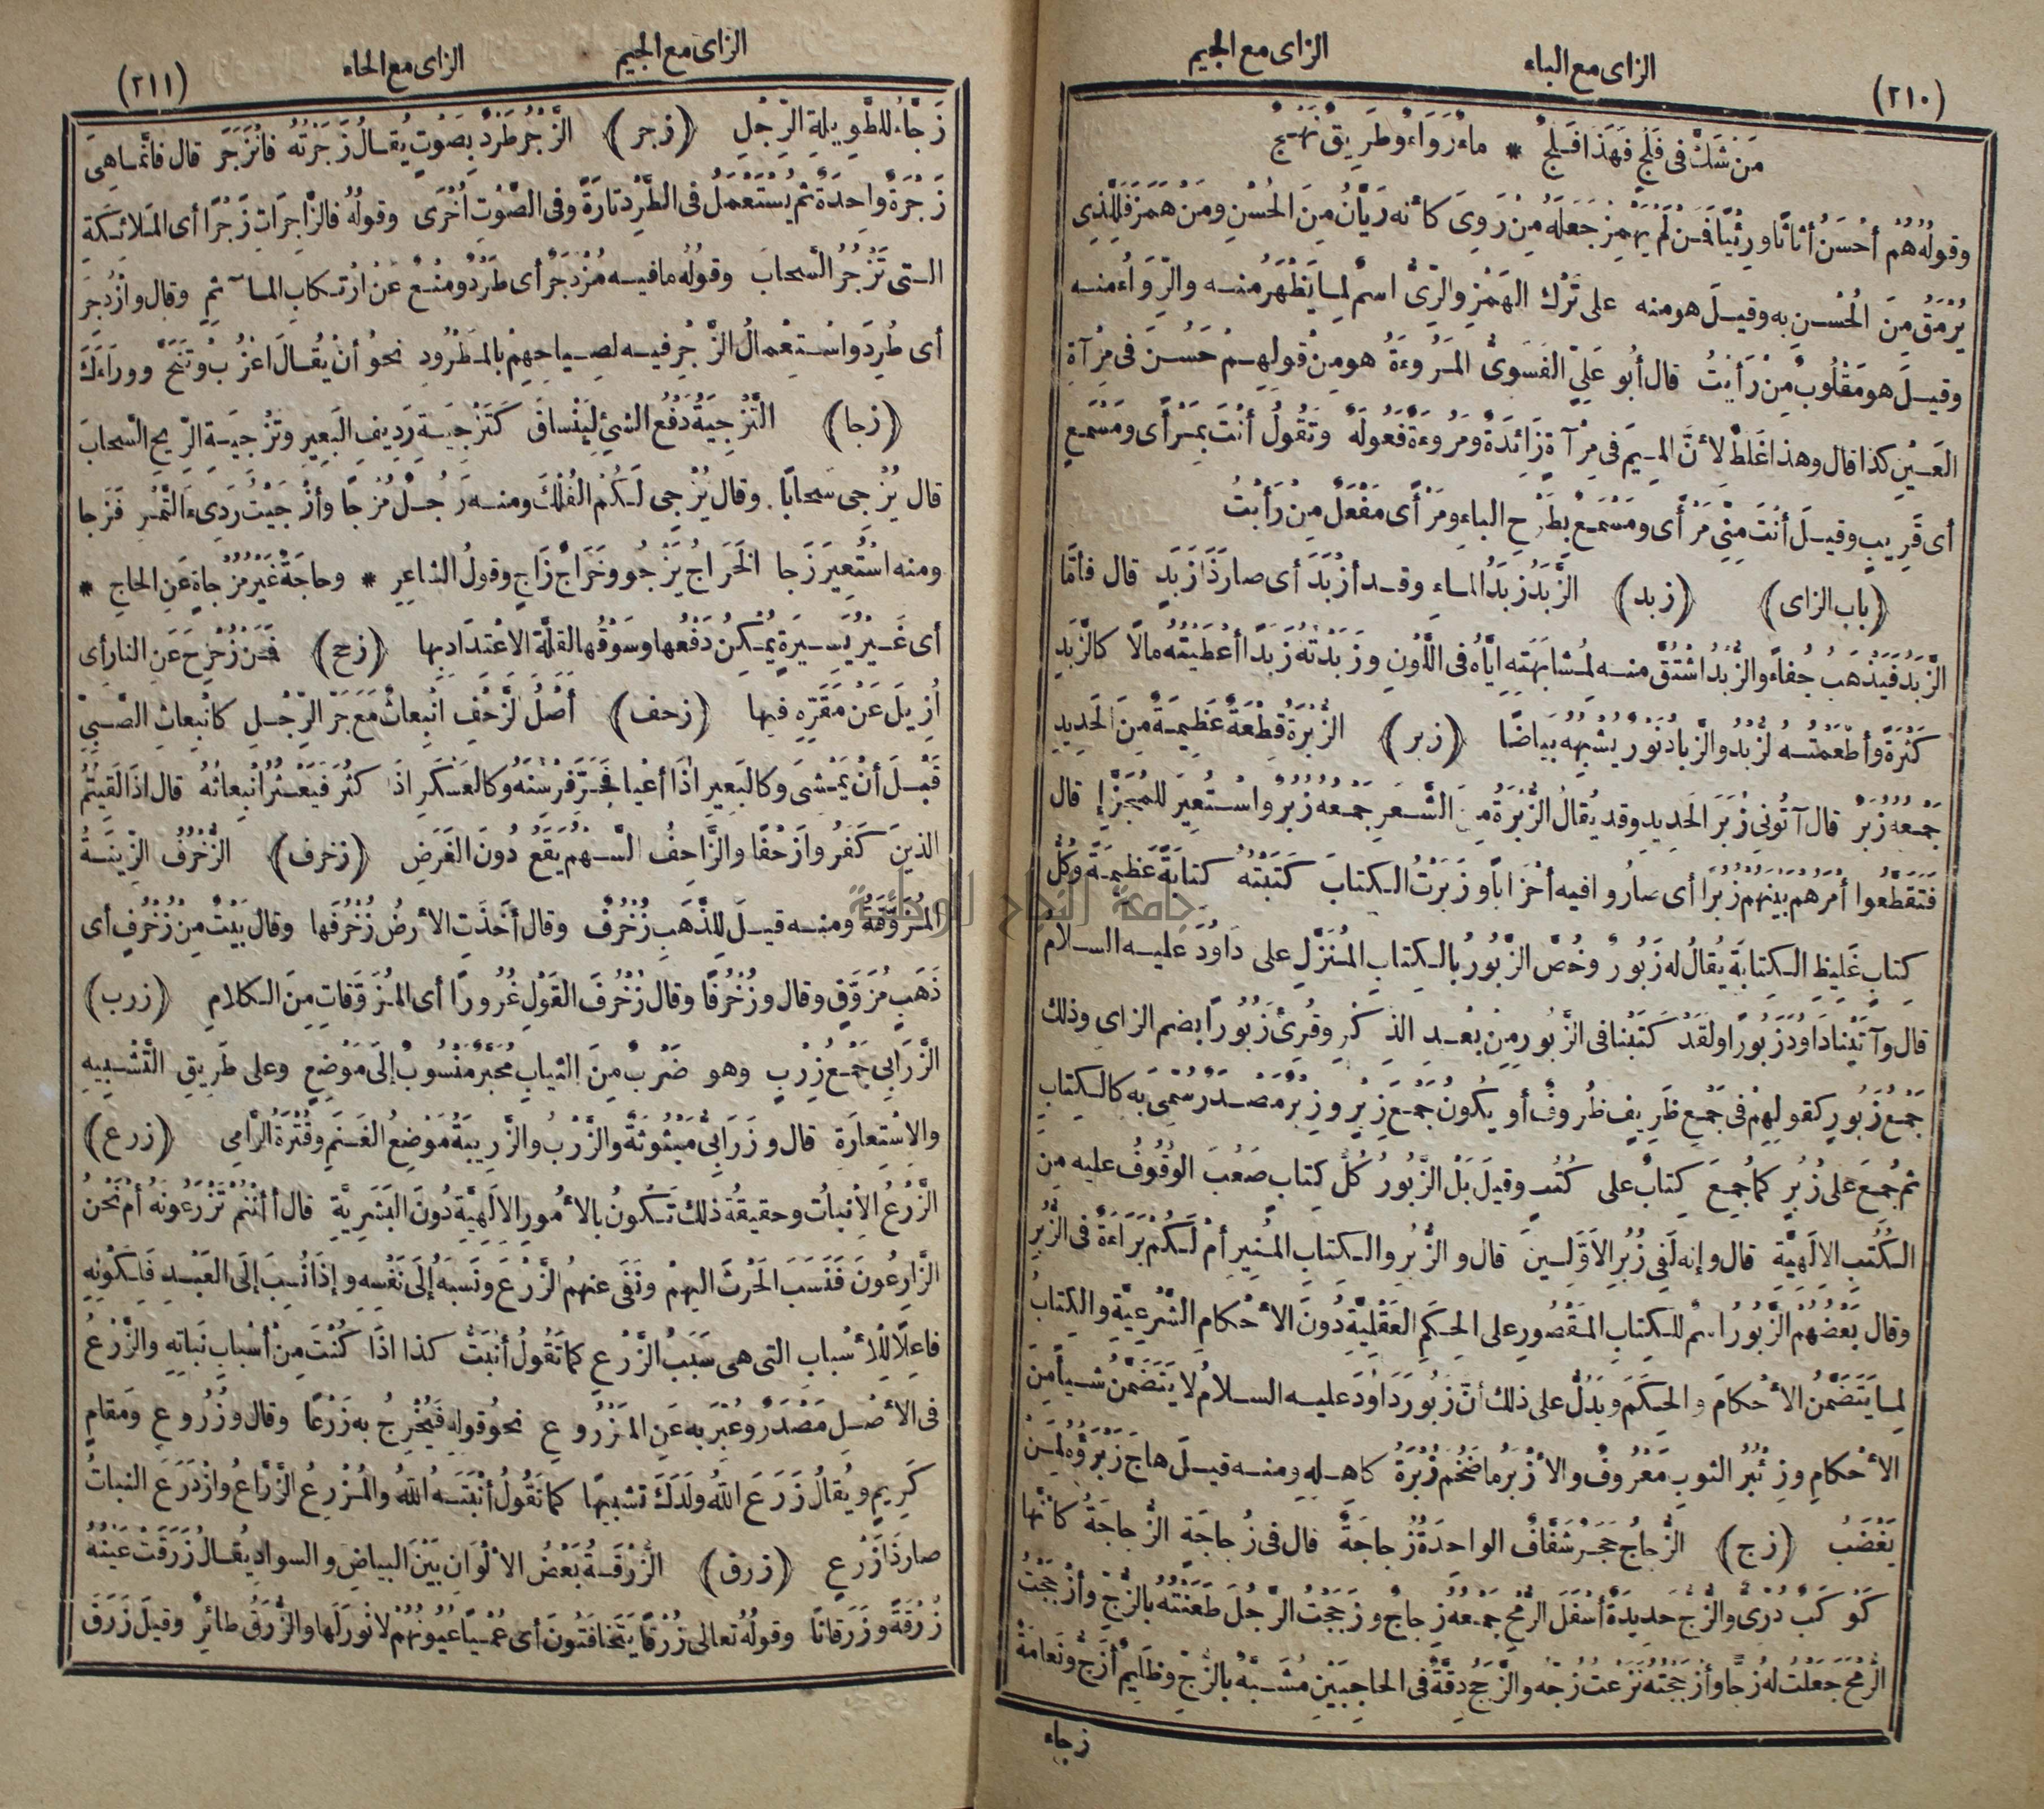 (٢١٠)
الزاى مع الباء
الزاى مع الجيم
مَن شَكَّ فى فَلْجٍ فَهَذَا فَلْجُ * ماءٌ رَوَاءٌ وطَرِيقٌ نَهْجُ
وقولُه هُمْ أحْسَنُ أثاثًا ورِئْيًا فَمَنْ لَمْ يَهْمِزْ جَعَلَهُ مِنْ رَوِىَ كأنه رَيَّانُ مِنَ الحُسْنِ ومَنْ هَمَزَ فَلِلَّذِى
يُرْمَقُ مِنَ الْحُسْنِ به وقيلَ هو منه على تَرْك الهَمْزِ والرِّىُّ اسمٌ لِمايَظْهَرُ منه والرِّوَاءُ منه
وقيلَ هو مَقْلُوبٌ مِنْ رَأيْتُ قال أبُو عَلِىٍّ الفَسَوِىُّ المَرُوءَةُ هو مِنْ قولِهِمْ حَسُنَ فى مِرْآةِ
العَيْنِ كذا قال وهذا غَلَطٌ لِأنَّ المِيمَ فى مِرْآةٍ زَائِدَةٌ ومَرُوءَةٌ فَعُولَةٌ وتَقُولُ أنْتَ بِمَرْأًى ومَسْمَعٍ
أى قَرِيبٍ وقيلَ أنتَ مِنِّى مَرْأًى ومَسْمَعٌ بطَرْحِ الباءِ ومَرْأًى مَفْعَلٌ مِنْ رَأيْتُ
(باب الزاى) (زبد) الزَّبَدُ زَبَدُ الماءِ وقد أزْبَدَ أى صارَ ذَا زَبَدٍ قال فأمَّا
الزَّبَدُ فَيَذْهَبُ جُفَاءً والزُّبْدُ اشْتُقَّ منه لِمُشابَهَتِه إيَّاهُ فى اللَّوْنِ وزَبَدْتُهُ زَبَدًا أعْطَيْتُهُ مالًا كالزَّبَدِ
كَثْرَةً وأطْعَمْتُهُ الزُّبْدَ والزَّبادُ نَوْرٌ يُشْبِهُهُ بَيَاضًا (زبر) الزُّبْرَةُ قِطْعَةٌ عَظِيمَةٌ مِنَ الحَدِيدِ
جَمْعُه زُبَرٌ قال آتُونِى زُبَرَ الحَدِيدِ وقد يُقالُ الزُّبْرَةُ مِنَ الشَّعَرِ جَمْعُه زُبُرٌ واسْتُعِيرَ لِلمُجَزَّإِ قال
فَتَقَطَّعُوا أمْرَهُمْ بَيْنَهُمْ زُبُرًا أى صارُوا فيه أحْزَابًا وزَبَرْتُ الكِتابَ كَتَبْتُهُ كتابَةً عَظِيمَةً وكُلُّ
كتابٍ غَلِيظِ الكِتابَةِ يُقالُ له زَبُورٌ وخُصَّ الزَّبُورُ بالكِتابِ المُنَزَّلِ على دَاوُدَ عليه السلامُ
قال وآتَيْنا دَاوُدَ زَبُورًا ولَقَدْ كَتَبْنا فى الزَّبُورِ مِنْ بَعْدِ الذِّكْرِ وقُرِئَ زُبُورًا بضم الزاى وذلك
جَمْعُ زَبُورٍ كقولِهِمْ فى جَمْعِ ظَرِيفٍ ظُرُوفٌ أو يكونُ جَمْعَ زِبْرٍ وزِبْرٌ مَصْدَرٌ سُمِّىَ به كالكِتابِ
ثم جُمِعَ على زُبُرٍ كما جُمِعَ كِتابٌ على كُتُبٍ وقيلَ بَلِ الزَّبُورُ كُلُّ كِتابٍ صَعُبَ الوُقُوفُ عليه مِن
الكُتُبِ الإِلَهِيَّةِ قال وإنه لَفِى زُبُرِ الأوَّلِينَ قال والزُّبُرِ والكِتابِ المُنِيرِ أمْ لَكُمْ بَرَاءَةٌ فى الزُّبُرِ
وقال بَعْضُهُم الزَّبُورُ اسْمٌ للكِتابِ المَقْصُورِ على الحِكَمِ العَقْلِيَّةِ دُونَ الأحْكامِ الشَّرْعِيَّةِ والكِتابُ
لِما يَتَضَمَّنُ الأحْكامَ والحِكَمَ ويَدُلُّ على ذلك أنَّ زَبُورَ دَاوُدَ عليه السلامُ لا يَتَضَمَّنُ شيأً مِنَ
الأحْكامِ وزِئْبِرُ الثوبِ مَعْرُوفٌ والأزْبَرُ ما ضَخُمَ زُبْرَةُ كاهِلِهِ ومنه قيلَ هاجَ زَبْرَؤُهُ لِمَنْ
يَغْضَبُ (زج) الزُّجاجُ حَجَرٌ شَفَّافٌ الواحِدَةُ زُجاجَةٌ قال فى زُجاجَةٍ الزُّجاجَةُ كأنَّها
كَوْكَبٌ دُرِّىٌّ والزُّجُّ حَدِيدَةٌ أسْفَلَ الرُّمْحِ جَمْعُه زِجاجٌ وزَجَجْتُ الرَّجُلَ طَعَنْتُهُ بالزُّجِّ وأزْجَجْتُ
الرُّمْحَ جَعَلْتُ له زُجًّا وأزْجَجْتُهُ نَزَعْتُ زُجَّه والزَّجَجُ دِقَّةٌ فى الحاجِبَيْنِ مُشَبَّهٌ بالزُّجِّ وظَلِيمٌ أزَجُّ ونَعامَةٌ
زجاء
الزاى مع الجيم
الزاى مع الحاء
(٢١١)
زَجَّاءُ للطَّوِيلةِ الرِّجْلِ (زجر) الزَّجْرُ طَرْدٌ بِصَوْتٍ يُقالُ زَجَرْتُهُ فانْزَجَرَ قال فإنَّما هِىَ
زَجْرَةٌ واحِدَةٌ ثم يُسْتَعْمَلُ فى الطَّرْدِ تارَةً وفى الصَّوْتِ أُخْرَى وقولُه فالزَّاجِرَاتِ زَجْرًا أى المَلائِكَةِ
التى تَزْجُرُ السَّحابَ وقولُه مافيه مُزْدَجَرٌ أى طَرْدٌ ومَنْعٌ عَنِ ارْتِكابِ المآثِمِ وقال وازْدُجِرَ
أى طُرِدَ واسْتِعْمالُ الزَّجْرِ فيه لِصِياحِهِمْ بالمَطْرُودِ نحوُ أنْ يُقالَ اعْزُبْ وتَنَحَّ ووراءَكَ
(زجا) التَّزْجِيَةُ دَفْعُ الشئِ لِيَنْساقَ كَتَزْجِيَةِ رَدِيفِ البَعِيرِ وتَزْجِيَةِ الرِّيحِ السَّحابَ
قال يُزْجِى سَحابًا وقال يُزْجِى لَكُمُ الفُلْكَ ومنه رَجُلٌ مُزْجًا وأزْجَيْتُ رَدِىءَ التَّمْرِ فَزَجا
ومنه اسْتُعِيرَ زَجا الخَرَاجُ يَزْجُو وخَرَاجٌ زَاجٍ وقولُ الشاعِرِ * وحاجَةٍ غَيْرِ مُزْجاةٍ عَنِ الحاجِ *
أى غَيْرُ يَسِيرَةٍ يُمْكِنُ دَفْعُها وسَوْقُها لقلَّةِ الاعْتِدَادِ بِها (زح) فَمَن زُحْزِحَ عَنِ النارِ أى
أُزِيلَ عَنْ مَقَرِّهِ فيها (زحف) أصْلُ الزَّحْفِ انْبِعاثٌ مَعَ جَرِّ الرِّجْلِ كانْبِعاثِ الصَّبِىِّ
قَبْلَ أنْ يَمْشِىَ وكالبَعِيرِ إذَا أعْيا فَجَرَّ فِرْسِنَهُ وكالعَسْكَرِ إذَا كَثُرَ فَيَعْثُرُ انْبِعاثُهُ قال إذَا لَقِيتُمُ
الذينَ كَفَرُوا زَحْفًا والزَّاحِفُ السَّهْمُ يَقَعُ دُونَ الغَرَضِ (زخرف) الزُّخْرُفُ الزِّينَةُ
المُزَوَّقَةُ ومنه قيلَ للذَّهَبِ زُخْرُفٌ وقال أخَذَتِ الأرضُ زُخْرُفَها وقال بَيْتٌ مِنْ زُخْرُفٍ أى
ذَهَبٍ مُزَوَّقٍ وقال وزُخْرُفًا وقال زُخْرُفَ القَوْلِ غُرُورًا أى المُزَوَّقاتِ مِنَ الكلامِ (زرب)
الزَّرَابِىُّ جَمْعُ زُرْبٍ وهو ضَرْبٌ مِنَ الثيابِ مُحَبَّرٌ مَنْسُوبٌ إلَى مَوْضِعٍ وعلى طَرِيقِ التَّشْبِيهِ
والاِسْتِعارَةِ قال وزَرَابِىُّ مَبْثُوثَةٌ والزَّرْبُ والزَّرِيبَةُ مَوْضِعُ الغَنَمِ وقُتْرَةُ الرَّامِى (زرع)
الزَّرْعُ الإنْباتُ وحقيقةُ ذلك تَكُونُ بالأُمُورِ الإلَهِيَّةِ دُونَ البَشَرِيَّةِ قال أأنْتُمْ تَزْرَعُونَهُ أمْ نَحْنُ
الزَّارِعُونَ فَنَسَبَ الحَرْثَ إليهِمْ ونَفَى عنهمُ الزَّرْعَ ونَسَبَهُ إلَى نَفْسِهِ وإذَا نُسِبَ إلَى العَبْدِ فَلِكَوْنِهِ
فاعِلًا لِلْأسْبابِ التى هى سَبَبُ الزَّرْعِ كما تَقُولُ أنْبَتُّ كذا إذَا كُنْتَ مِنْ أسْبابِ نَباتِهِ والزَّرْعُ
فى الأصْلِ مَصْدَرٌ وعُبِّرَ به عَنِ المَزْرُوعِ نحوُ قولِه فَيُخْرِجُ به زَرْعًا وقال وزُرُوعٍ ومَقامٍ
كَرِيمٍ ويُقالُ زَرَعَ اللهُ ولَدَكَ تشبيهًا كما تَقُولُ أنْبَتَهُ اللهُ والمُزْرِعُ الزَّرَّاعُ وازْدَرَعَ النباتُ
صارَ ذَا زَرْعٍ (زرق) الزُّرْقَةُ بَعْضُ الألْوَانِ بَيْنَ البياضِ والسوادِ يُقالُ زَرَقَتْ عَيْنُهُ
زُرْقَةً وزَرَقانًا وقولُه تعالى زُرْقًا يَتَخَافَتُونَ أى عُمْيًا عُيُونُهُمْ لا نُورَ لَها والزُّرَقُ طائِرٌ وقيلَ زَرَقَ
جامعة النجاح الوطنية